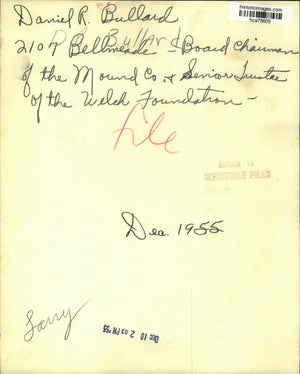 historicimages.com
Daniel R. Bullard
D R Bullard
2107 Bellmeade - Board Chairman
of the Mound Co. & Senior Trustee
of the Welch Foundation -
File
RETURN TO
FILES
Dec. 1955
Larry
DEC 10 2 03 PM '55